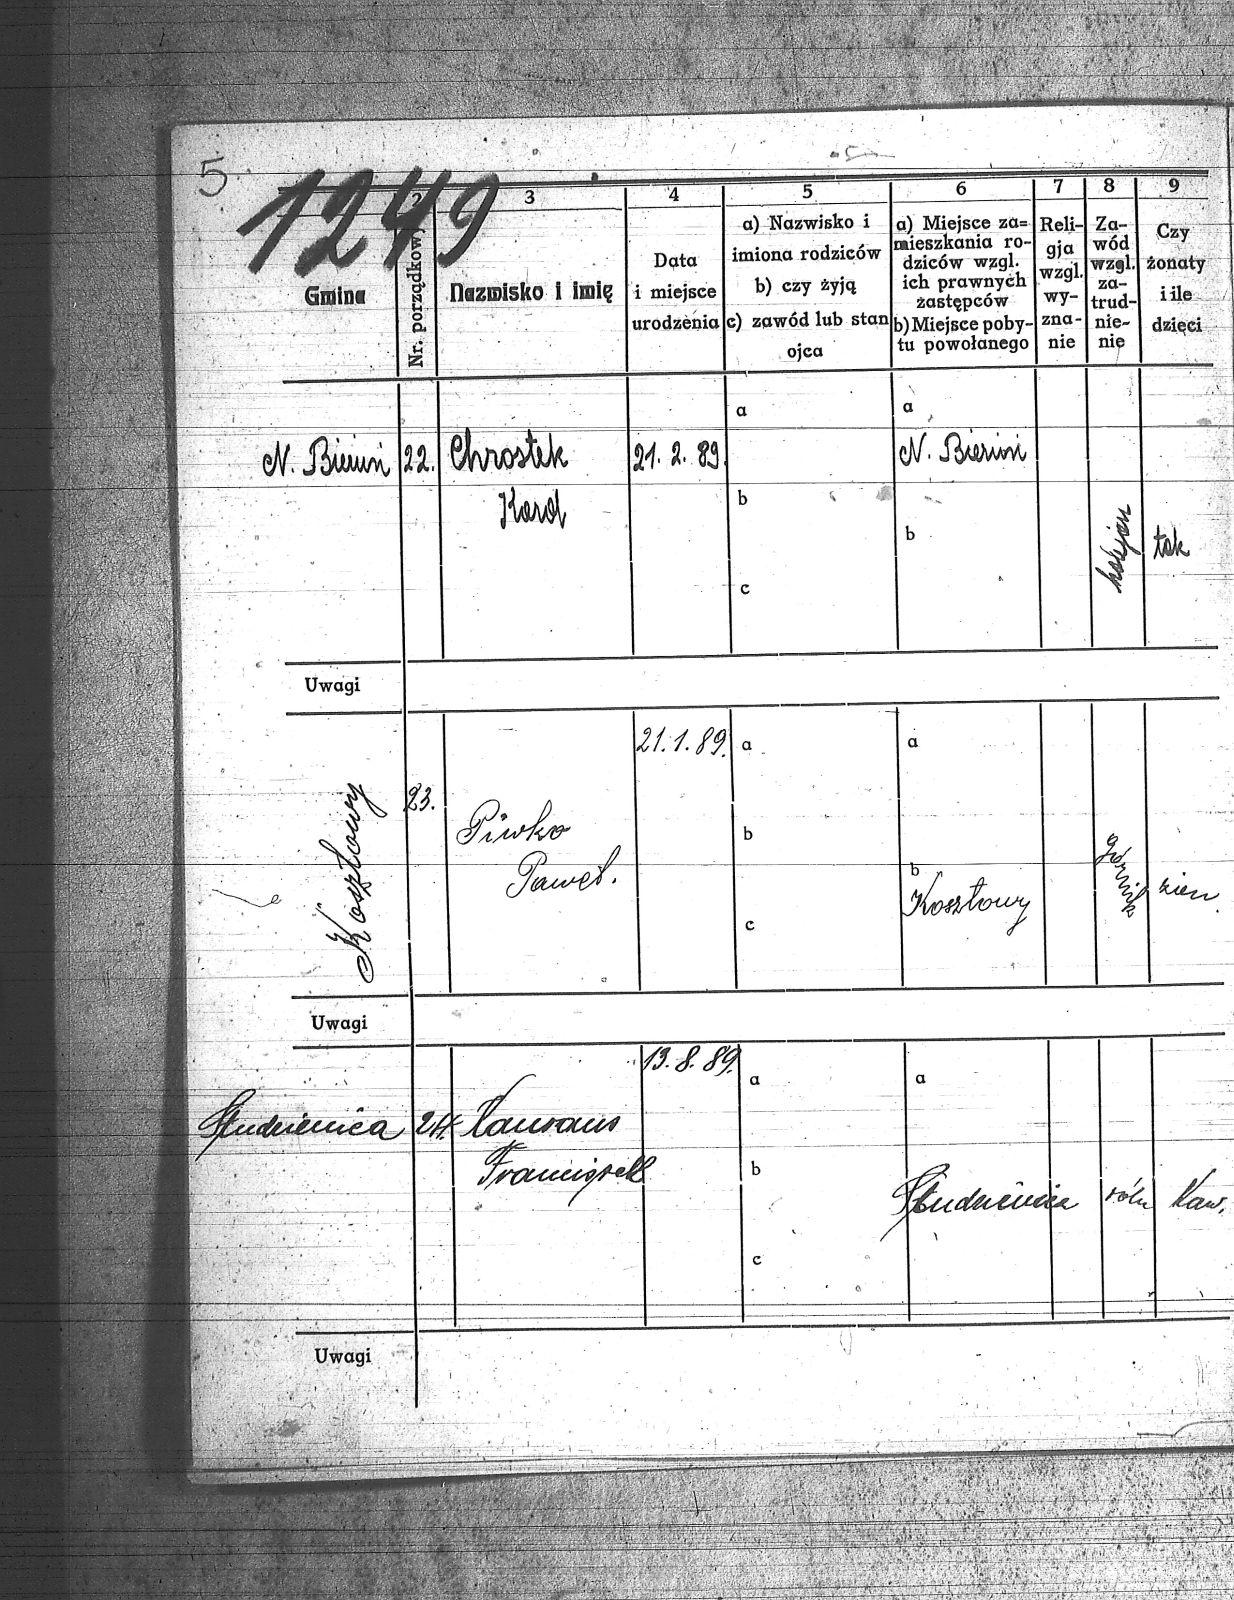 5
1249
2 3 4 5 6 7 8 9
Gmina
Nr. porządkowy
Nazwisko i imię
Data
i miejsce
urodzenia
a) Nazwisko i
imiona rodziców
b) czy żyją
c) zawód lub stan
ojca
a) Miejsce za=
mieszkania ro-
dziców wzgl.
ich prawnych
zastępców
b) Miejsce poby-
tu powołanego
Reli-
gja
wzgl.
wy-
zna-
nie
Za-
wód
wzgl.
za-
trud-
nie-
nie
Czy
żonaty
i ile
dzięci
a a
N. Bieruń 22. Chrostek 21. 2. 89. N. Bieruń
Karol
b
b
tak
c
Uwagi
21. 1. 89. a a
Kosztowy
23.
Piwko
Paweł.
b
b
Kosztowy
górnik
c
Uwagi
13. 8. 89.
a a
Studzienica 24.
Franciszek
b
Studzienica roln Kaw.
c
Uwagi